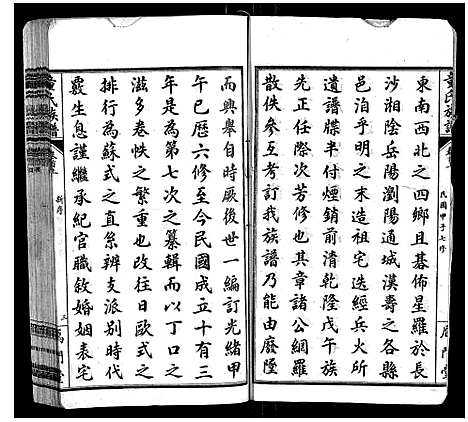 東南西北之四鄉且碁佈星羅於長
沙湘陰岳陽瀏陽通城漢壽之各縣
邑泊乎明之末造祖宅迭經兵火所
遺譜牒半付煙銷前清乾隆戊午族
先正任際次芳修也其章諸公網羅
散佚參互考訂我族譜乃能由廢墜
民國甲子七修
而興舉自時厥後世一編訂光緒甲
午已歷六修至今民國成立十有三
年是為第七次之纂輯而以丁口之
滋多卷帙之繁重也改往日歐式之
排行為蘇式之直系辨支派別時代
覈生息謹繼承紀官職敘婚姻表宅
新序
三